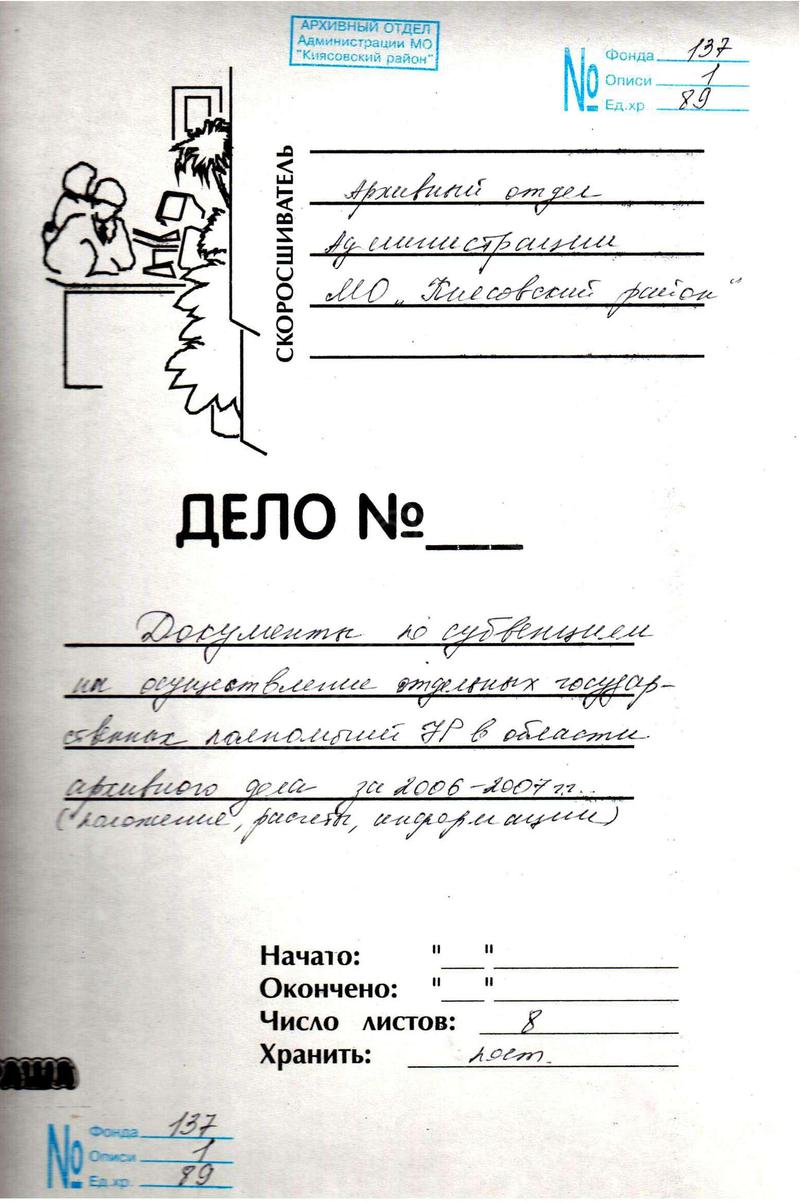 АРХИВНЫЙ ОТДЕЛ
Администрации МО
"Киясовский район"
№ Фонда 137
Описи 1
Ед.хр 89
СКОРОСШИВАТЕЛЬ
Архивный отдел
Администрации
МО „Киясовский район"
ДЕЛО №___
Документы по субвенциям
на осуществление отдельных государ-
ственных полномочий УР в области
архивного дела за 2006-2007 г.г.
(положение, расчеты, информации)
Начато: "___"
Окончено: "___"
Число листов: 8
Хранить: пост.
АША
№ Фонда 137
Описи 1
Ед.хр. 89